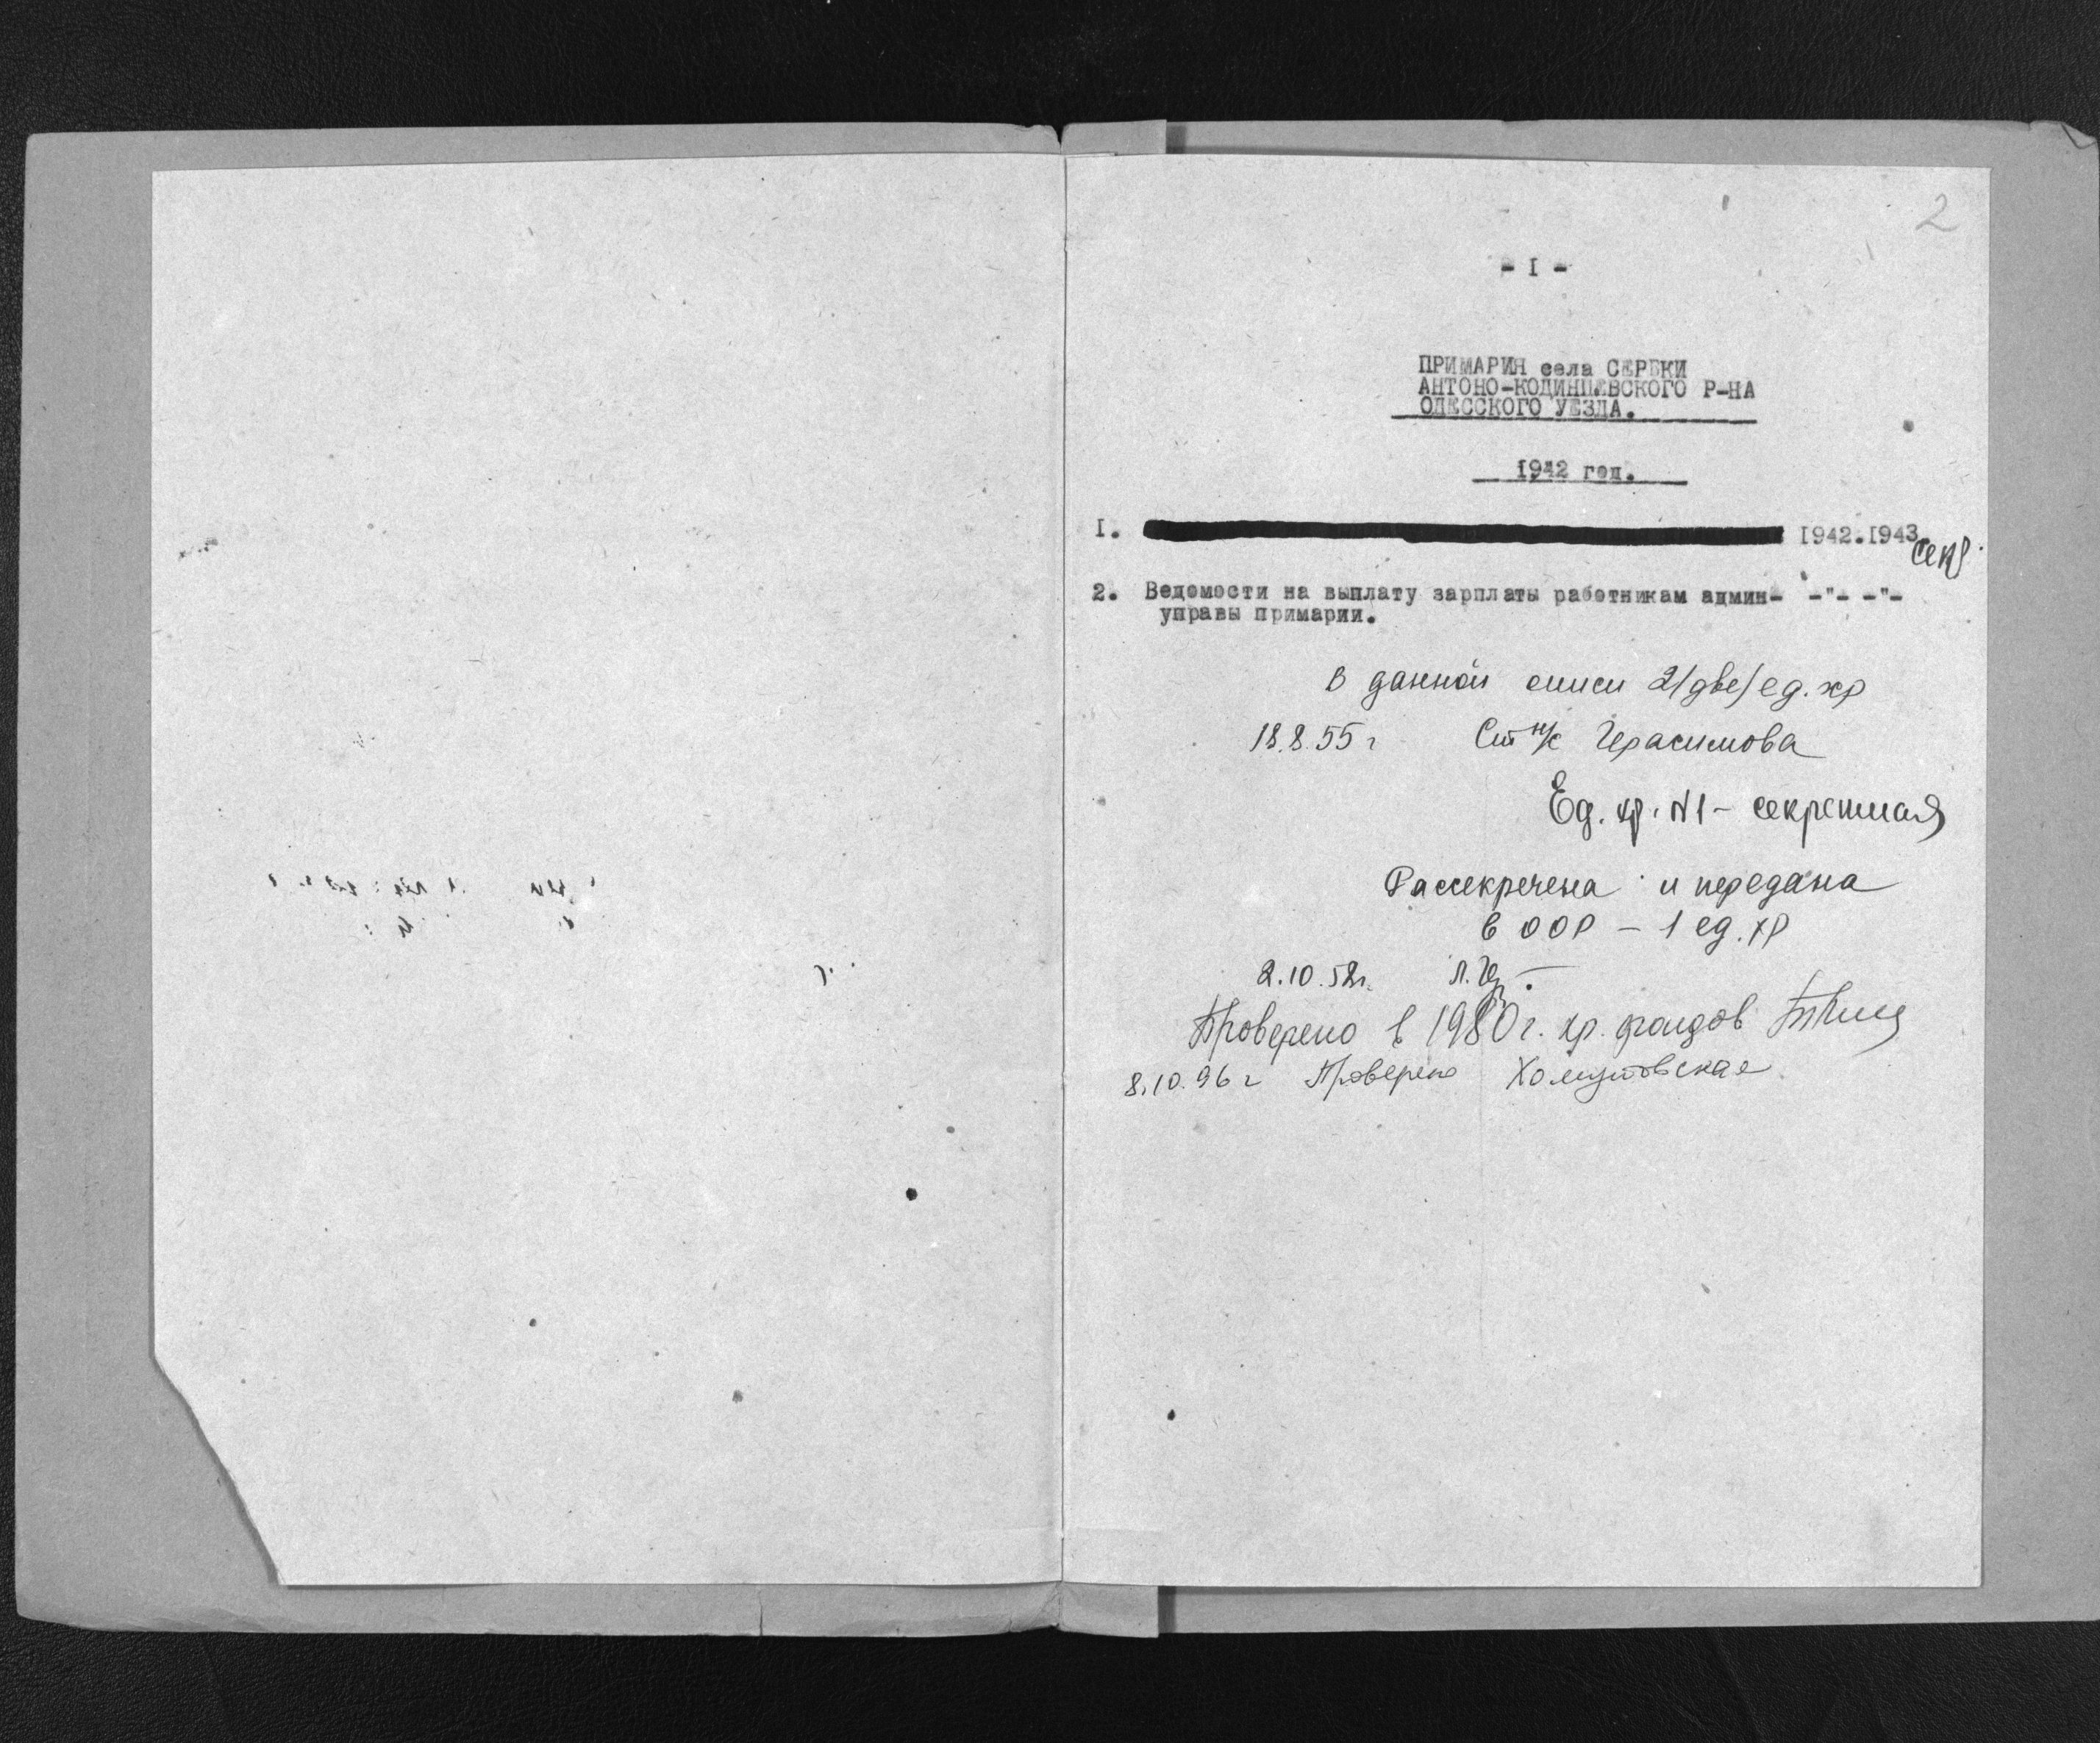 2
- I -
ПРИМАРИЯ села СЕРБКИ
АНТОНО-КОДИНЦЕВСКОГО Р-НА
ОДЕССКОГО УЕЗДА.
1942 год.
I. 1942.1943 секр.
2. Ведомости на выплату зарплаты работникам админ- -"- -"-
управы примарии.
В данной описи 2/две/ед. хр
18.8.55 г Ст н/с Герасимова
Ед. хр. N1 - секретная
Рассекречена и передана
в ООР - 1 ед. хр
2.10.58г.
Проверено в 1980г. хр. фондов
8.10.96 г Проверено Хомутовская